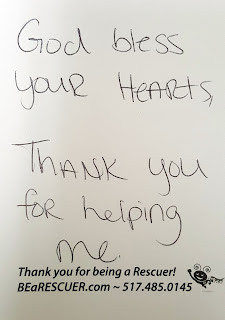 God bless
your Hearts,
Thank you
for helping
me.
Thank you for being a Rescuer!
BEaRESCUER.com ~ 517.485.0145